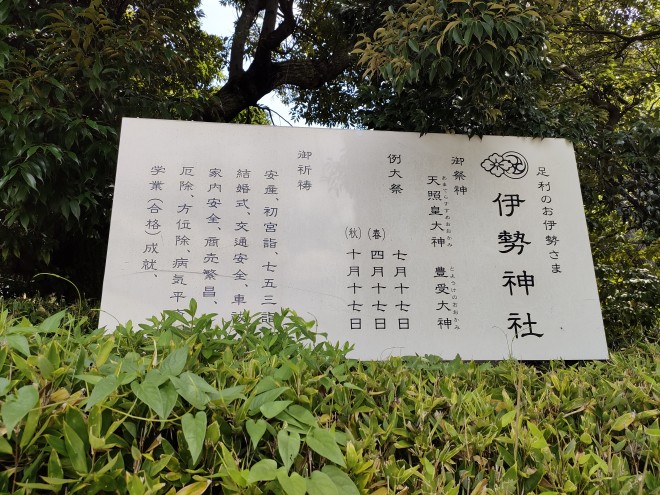 足利のお伊勢さま
伊勢神社
御祭神
天照皇大神 豊受大神
あまてらすすめおおかみ とようけのおおかみ
例大祭
七月十七日
(春) 四月十七日
(秋) 十月十七日
御祈祷
安産、初宮詣、七五三詣
結婚式、交通安全、車
家内安全、商売繁昌、
厄除、方位除、病気平
学業(合格)成就、